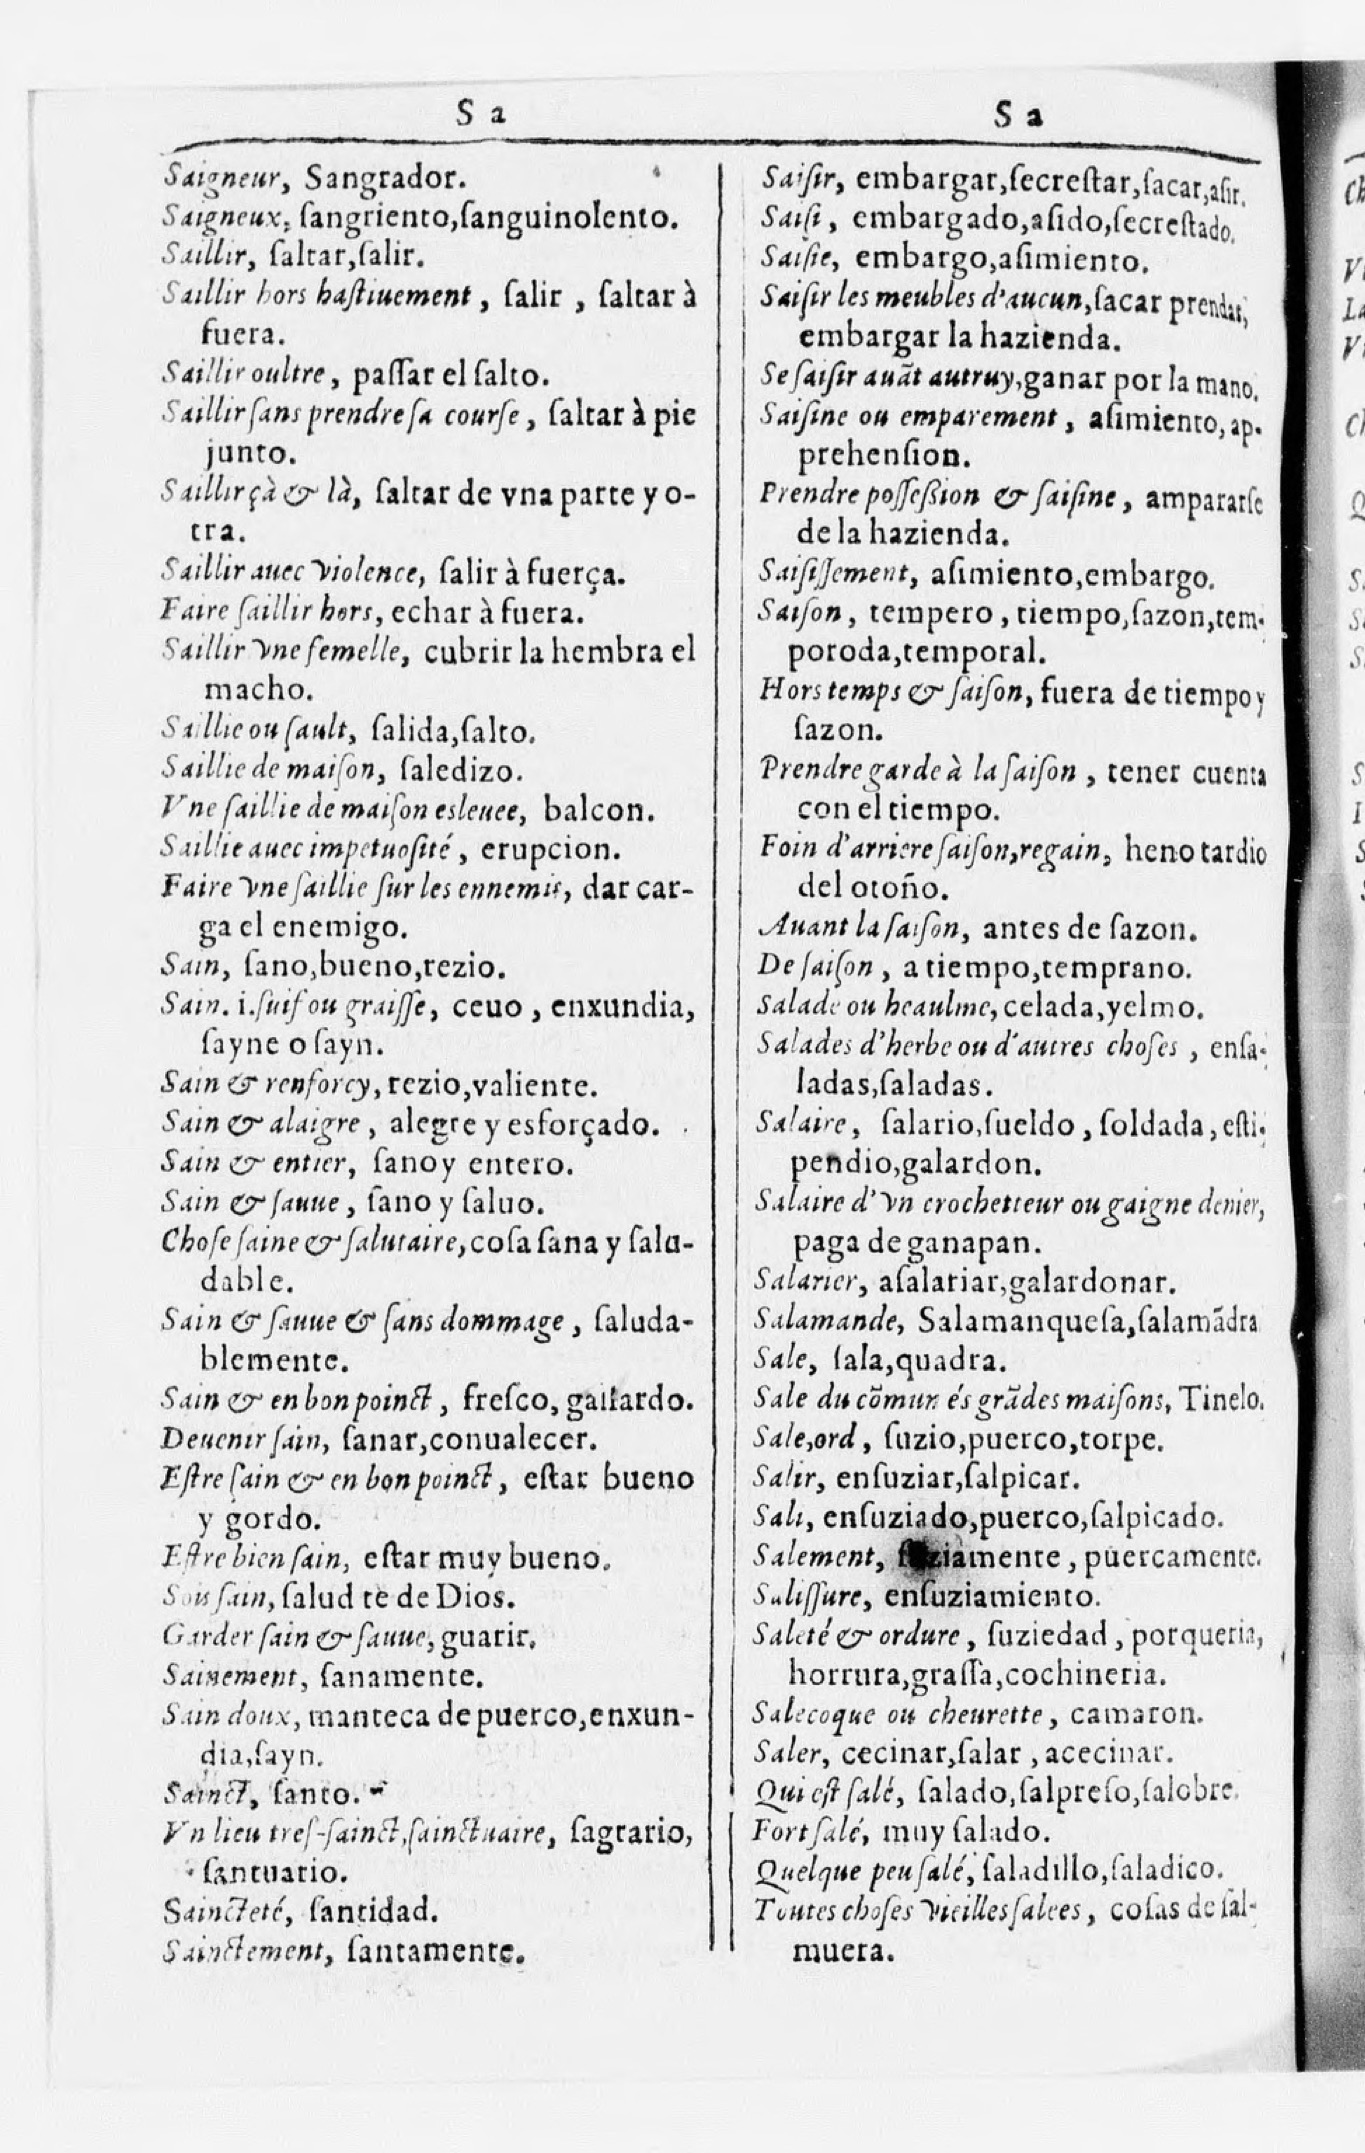 S a
Saigneur, Sangrador.
Saigneux, ſangriento,ſanguinolento.
Saillir, ſaltar,ſalir.
Saillir hors haſtiuement , ſalir , ſaltar à
fuera.
Saillir oultre , paſſar el ſalto.
Saillir ſans prendre ſa courſe , ſaltar à pie
junto.
Saillir çà & là, ſaltar de vna parte y o-
tra.
Saillir auec violence, ſalir à fuerça.
Faire ſaillir hors, echar à fuera.
Saillir vne femelle, cubrir la hembra el
macho.
Saillie ou ſault, ſalida,ſalto.
Saillie de maiſon, ſaledizo.
Vne ſaillie de maiſon esleuee, balcon.
Saillie auec impetuoſité , erupcion.
Faire vne ſaillie ſur les ennemis, dar car-
ga el enemigo.
Sain, ſano,bueno,rezio.
Sain. i.ſuif ou graiſſe, ceuo , enxundia,
ſayne o ſayn.
Sain & renforcy, rezio,valiente.
Sain & alaigre , alegre y esforçado.
Sain & entier, ſano y entero.
Sain & ſauue , ſano y ſaluo.
Choſe ſaine & ſalutaire, coſa ſana y ſalu-
dable.
Sain & ſauue & ſans dommage , ſaluda-
blemente.
Sain & en bon poinct , freſco, gallardo.
Deuenir ſain, ſanar,conualecer.
Eſtre ſain & en bon poinct , eſtar bueno
y gordo.
Eſtre bien ſain, eſtar muy bueno.
Sois ſain, ſalud te de Dios.
Garder ſain & ſauue, guarir.
Sainement, ſanamente.
Sain doux, manteca de puerco,enxun-
dia,ſayn.
Sainct, ſanto.
Vn lieu treſ-ſainct,ſainctuaire, ſagrario,
ſantuario.
Saincteté, ſantidad.
Sainctement, ſantamente.
S a
Saiſir, embargar,ſecreſtar,ſacar,aſir.
Saiſi , embargado,aſido,ſecreſtado.
Saiſie, embargo,aſimiento.
Saiſir les meubles d'aucun,ſacar prendas,
embargar la hazienda.
Se ſaiſir auãt autruy,ganar por la mano.
Saiſine ou emparement , aſimiento, ap-
prehenſion.
Prendre poſſeßion & ſaiſine , ampararſe
de la hazienda.
Saiſiſſement, aſimiento,embargo.
Saiſon , tempero , tiempo,ſazon,tem-
poroda,temporal.
Hors temps & ſaiſon, fuera de tiempo y
ſazon.
Prendre garde à la ſaiſon , tener cuenta
con el tiempo.
Foin d'arriere ſaiſon,regain, heno tardio
del otoño.
Auant la ſaiſon, antes de ſazon.
De ſaiſon , a tiempo,temprano.
Salade ou heaulme, celada,yelmo.
Salades d'herbe ou d'autres choſes , enſa-
ladas,ſaladas.
Salaire , ſalario,ſueldo , ſoldada , eſti-
pendio,galardon.
Salaire d'vn crochetteur ou gaigne denier,
paga de ganapan.
Salarier, aſalariar,galardonar.
Salamande, Salamanqueſa,ſalamãdra
Sale, ſala,quadra.
Sale du cõmun és grãdes maiſons, Tinelo.
Sale,ord , ſuzio,puerco,torpe.
Salir, enſuziar,ſalpicar.
Sali, enſuziado,puerco,ſalpicado.
Salement, ſuziamente , puercamente.
Saliſſure, enſuziamiento.
Saleté & ordure , ſuziedad , porqueria,
horrura,graſſa,cochineria.
Salecoque ou cheurette , camaron.
Saler, cecinar,ſalar , acecinar.
Qui eſt ſalé, ſalado,ſalpreſo,ſalobre.
Fort ſalé, muy ſalado.
Quelque peu ſalé, ſaladillo,ſaladico.
Toutes choſes vieilles ſalees , coſas de ſal-
muera.